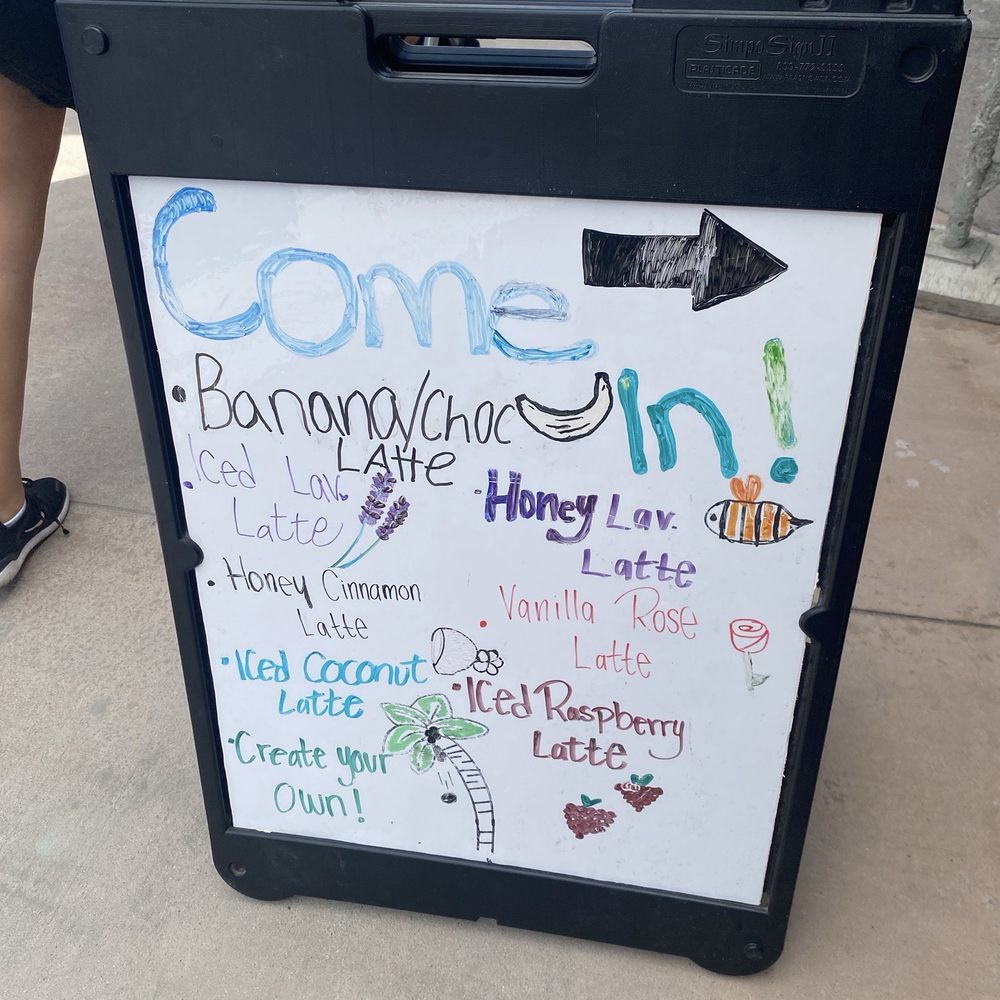 SimpoSign II
PLASTICADE
Come
In!
• Banana/Choc
LAtte
• Iced Lav.
Latte
• Honey Lav.
Latte
• Honey Cinnamon
Latte
• Vanilla Rose
Latte
• Iced Coconut
Latte
• Iced Raspberry
Latte
• Create your
Own!